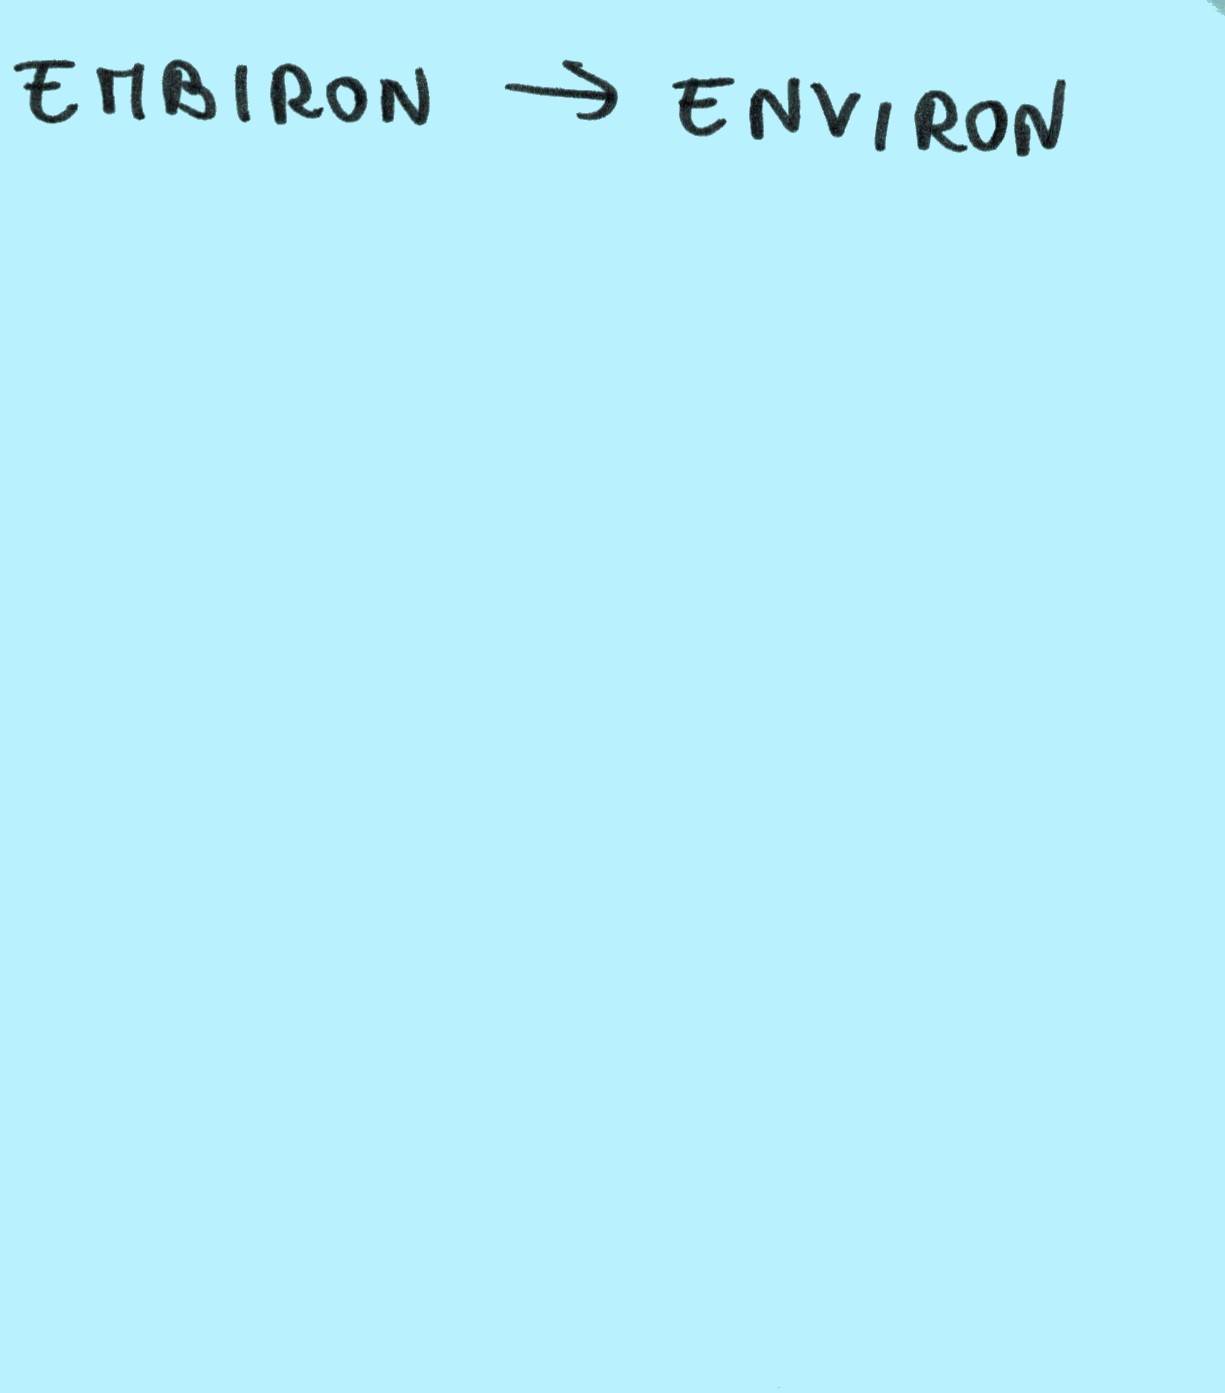 EMBIRON → ENVIRON